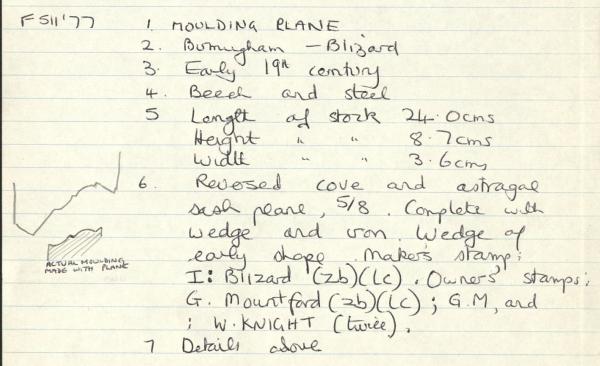 F511'77
1 MOULDING PLANE
2. Birmingham - Blizard
3. Early 19th century
4. Beech and steel
5 Length of stock 24.0cms
Height " " 8.7cms
Width " " 3.6cms
6. Reversed cove and astragal
sash plane, 5/8. Complete with
wedge and iron. Wedge of
early shape. Maker's stamp;
I: Blizard (zb)(Lc). Owners' stamps;
G. Mountford (zb)(Lc); G.M, and
; W. KNIGHT (twice).
7 Details above
ACTUAL MOULDING
MADE WITH PLANE